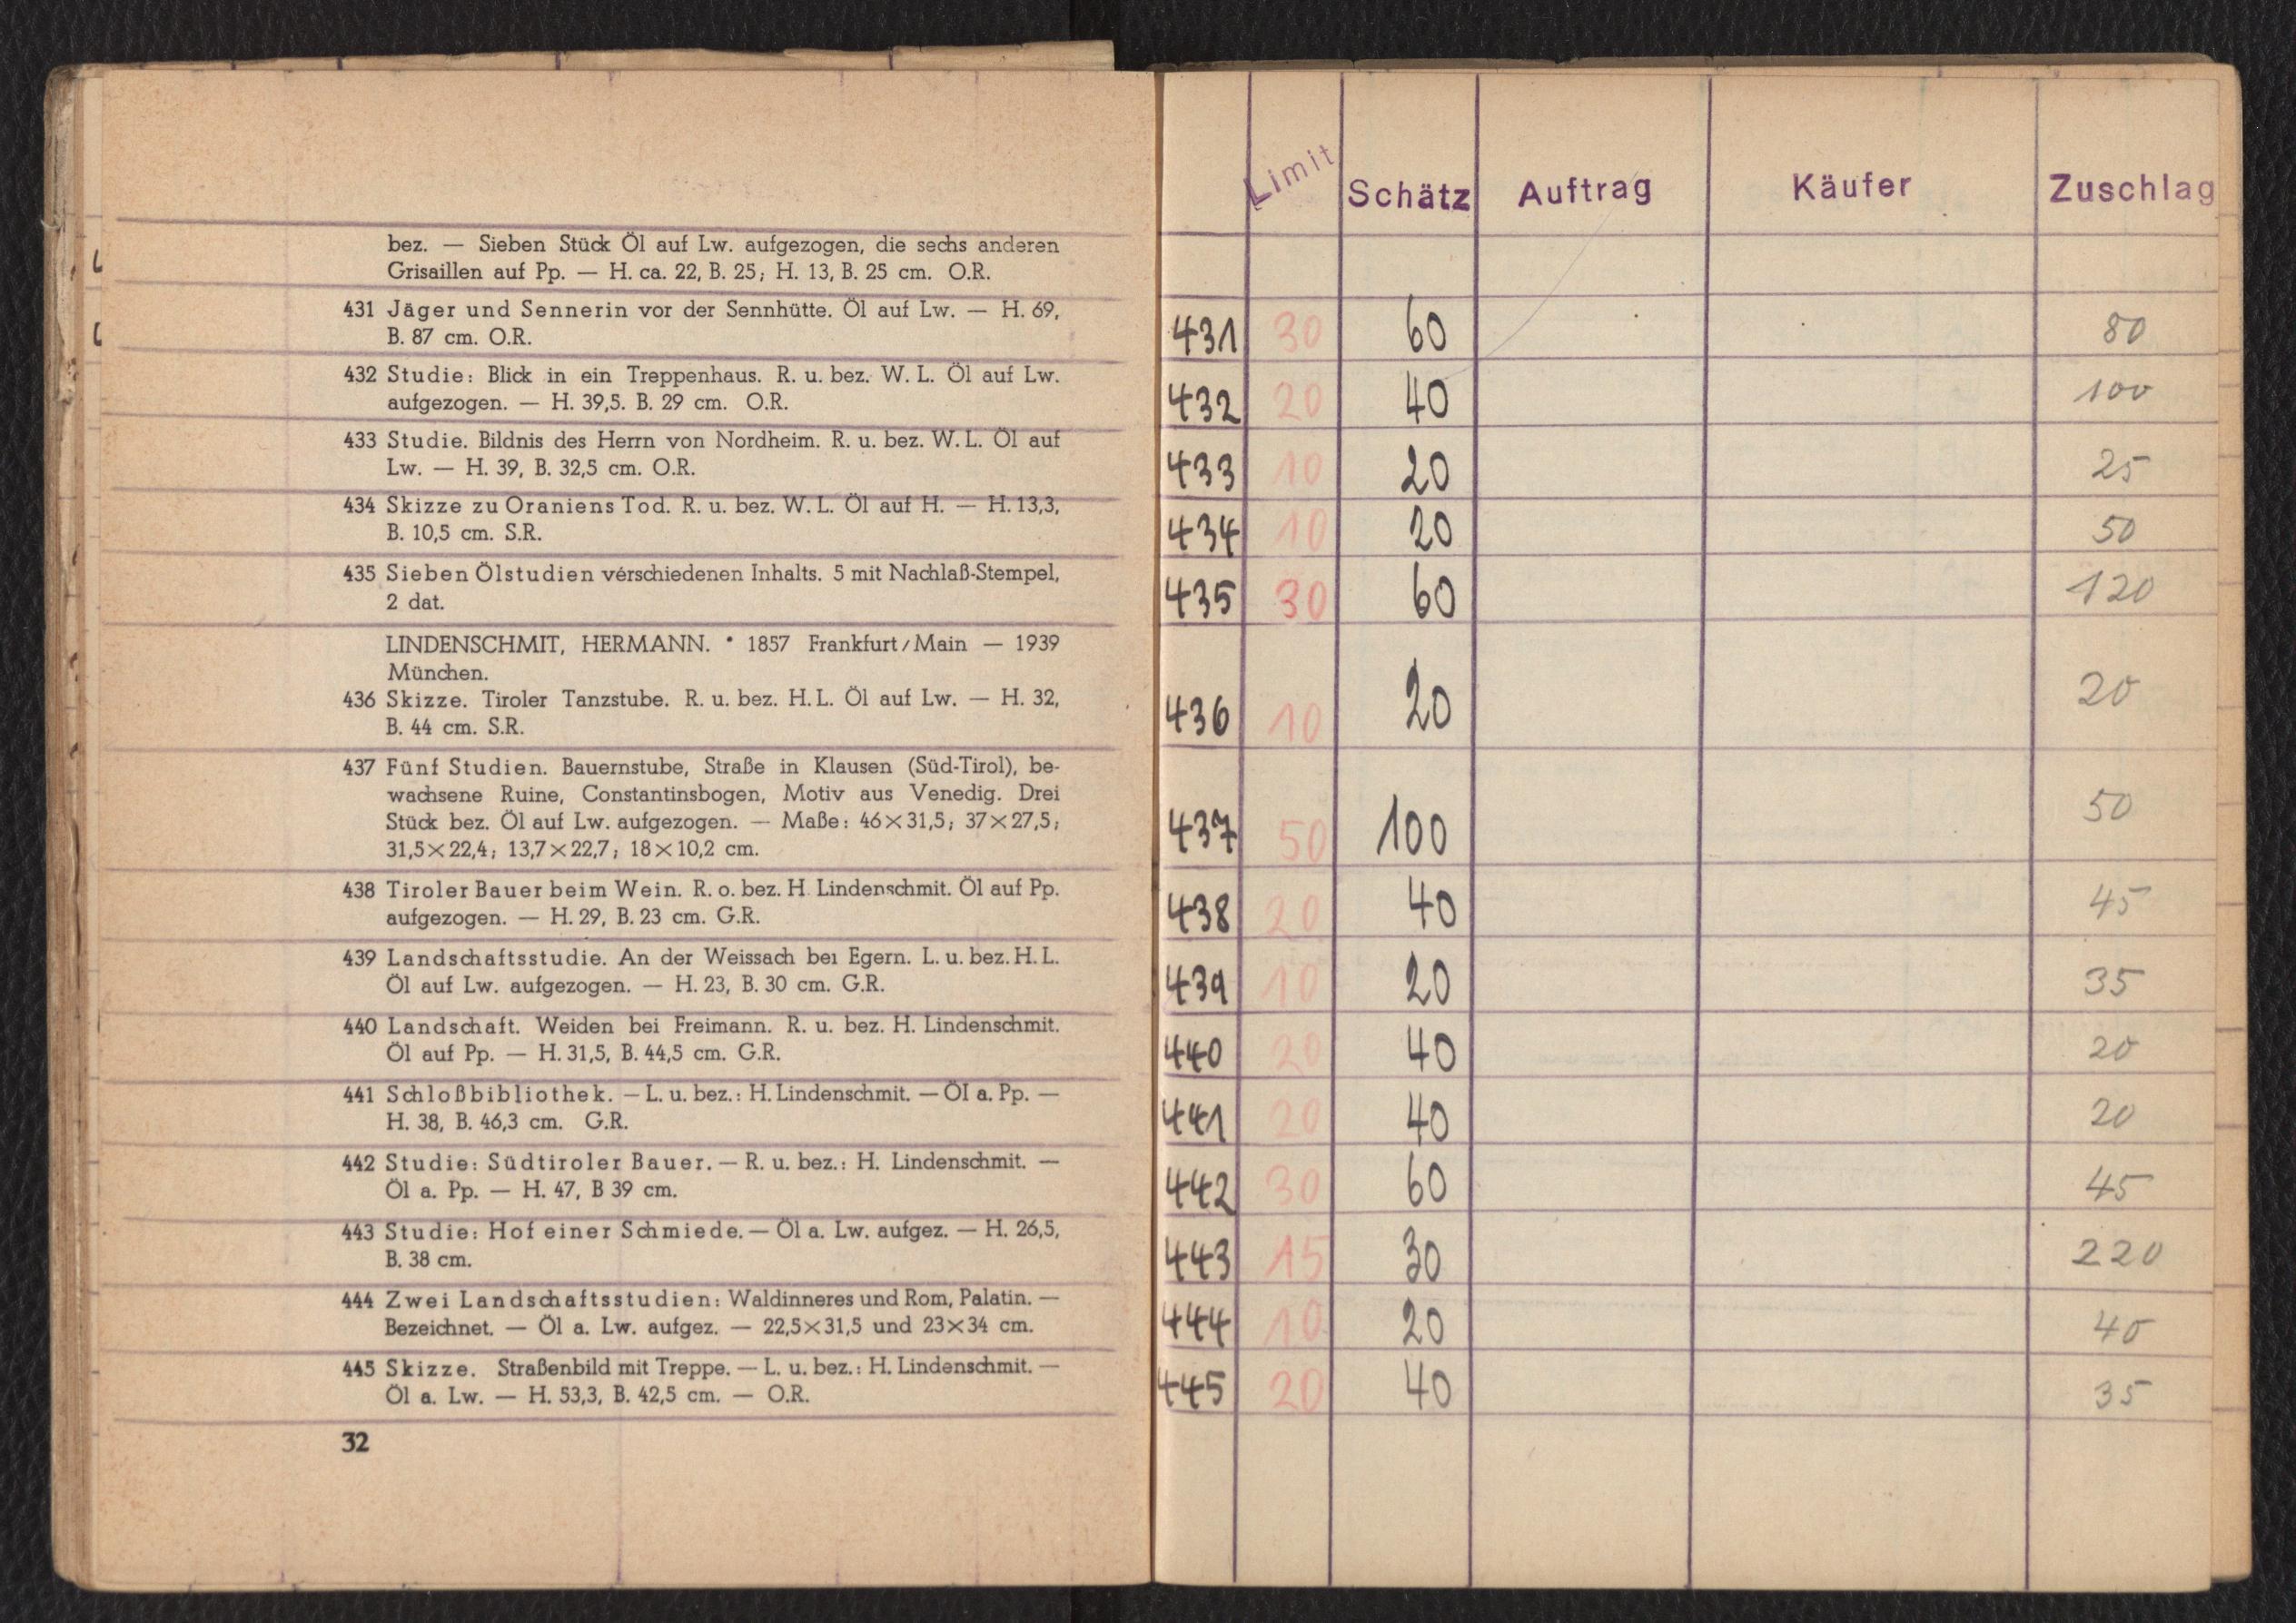 bez. — Sieben Stück Öl auf Lw. aufgezogen, die sechs anderen
Grisaillen auf Pp. — H. ca. 22, B. 25; H. 13, B. 25 cm. O.R.
431 Jäger und Sennerin vor der Sennhütte. Öl auf Lw. — H. 69,
B. 87 cm. O.R.
432 Studie: Blick in ein Treppenhaus. R. u. bez. W. L. Öl auf Lw.
aufgezogen. — H. 39,5. B. 29 cm. O.R.
433 Studie. Bildnis des Herrn von Nordheim. R. u. bez. W. L. Öl auf
Lw. — H. 39, B. 32,5 cm. O.R.
434 Skizze zu Oraniens Tod. R. u. bez. W. L. Öl auf H. — H. 13,3,
B. 10,5 cm. S.R.
435 Sieben Ölstudien verschiedenen Inhalts. 5 mit Nachlaß-Stempel,
2 dat.
LINDENSCHMIT, HERMANN. * 1857 Frankfurt/Main — 1939
München.
436 Skizze. Tiroler Tanzstube. R. u. bez. H. L. Öl auf Lw. — H. 32,
B. 44 cm. S.R.
437 Fünf Studien. Bauernstube, Straße in Klausen (Süd-Tirol), be-
wachsene Ruine, Constantinsbogen, Motiv aus Venedig. Drei
Stück bez. Öl auf Lw. aufgezogen. — Maße: 46×31,5; 37×27,5;
31,5×22,4; 13,7×22,7; 18×10,2 cm.
438 Tiroler Bauer beim Wein. R. o. bez. H. Lindenschmit. Öl auf Pp.
aufgezogen. — H. 29, B. 23 cm. G.R.
439 Landschaftsstudie. An der Weissach bei Egern. L. u. bez. H. L.
Öl auf Lw. aufgezogen. — H. 23, B. 30 cm. G.R.
440 Landschaft. Weiden bei Freimann. R. u. bez. H. Lindenschmit.
Öl auf Pp. — H. 31,5, B. 44,5 cm. G.R.
441 Schloßbibliothek. — L. u. bez.: H. Lindenschmit. — Öl a. Pp. —
H. 38, B. 46,3 cm. G.R.
442 Studie: Südtiroler Bauer. — R. u. bez.: H. Lindenschmit. —
Öl a. Pp. — H. 47, B 39 cm.
443 Studie: Hof einer Schmiede. — Öl a. Lw. aufgez. — H. 26,5,
B. 38 cm.
444 Zwei Landschaftsstudien: Waldinneres und Rom, Palatin. —
Bezeichnet. — Öl a. Lw. aufgez. — 22,5×31,5 und 23×34 cm.
445 Skizze. Straßenbild mit Treppe. — L. u. bez.: H. Lindenschmit. —
Öl a. Lw. — H. 53,3, B. 42,5 cm. — O.R.
32
Limit Schätz Auftrag Käufer Zuschlag
431 30 60 80
432 20 40 100
433 10 20 25
434 10 20 50
435 30 60 120
436 10 20 20
437 50 100 50
438 20 40 45
439 10 20 35
440 20 40 20
441 20 40 20
442 30 60 45
443 15 30 220
444 10 20 40
445 20 40 35